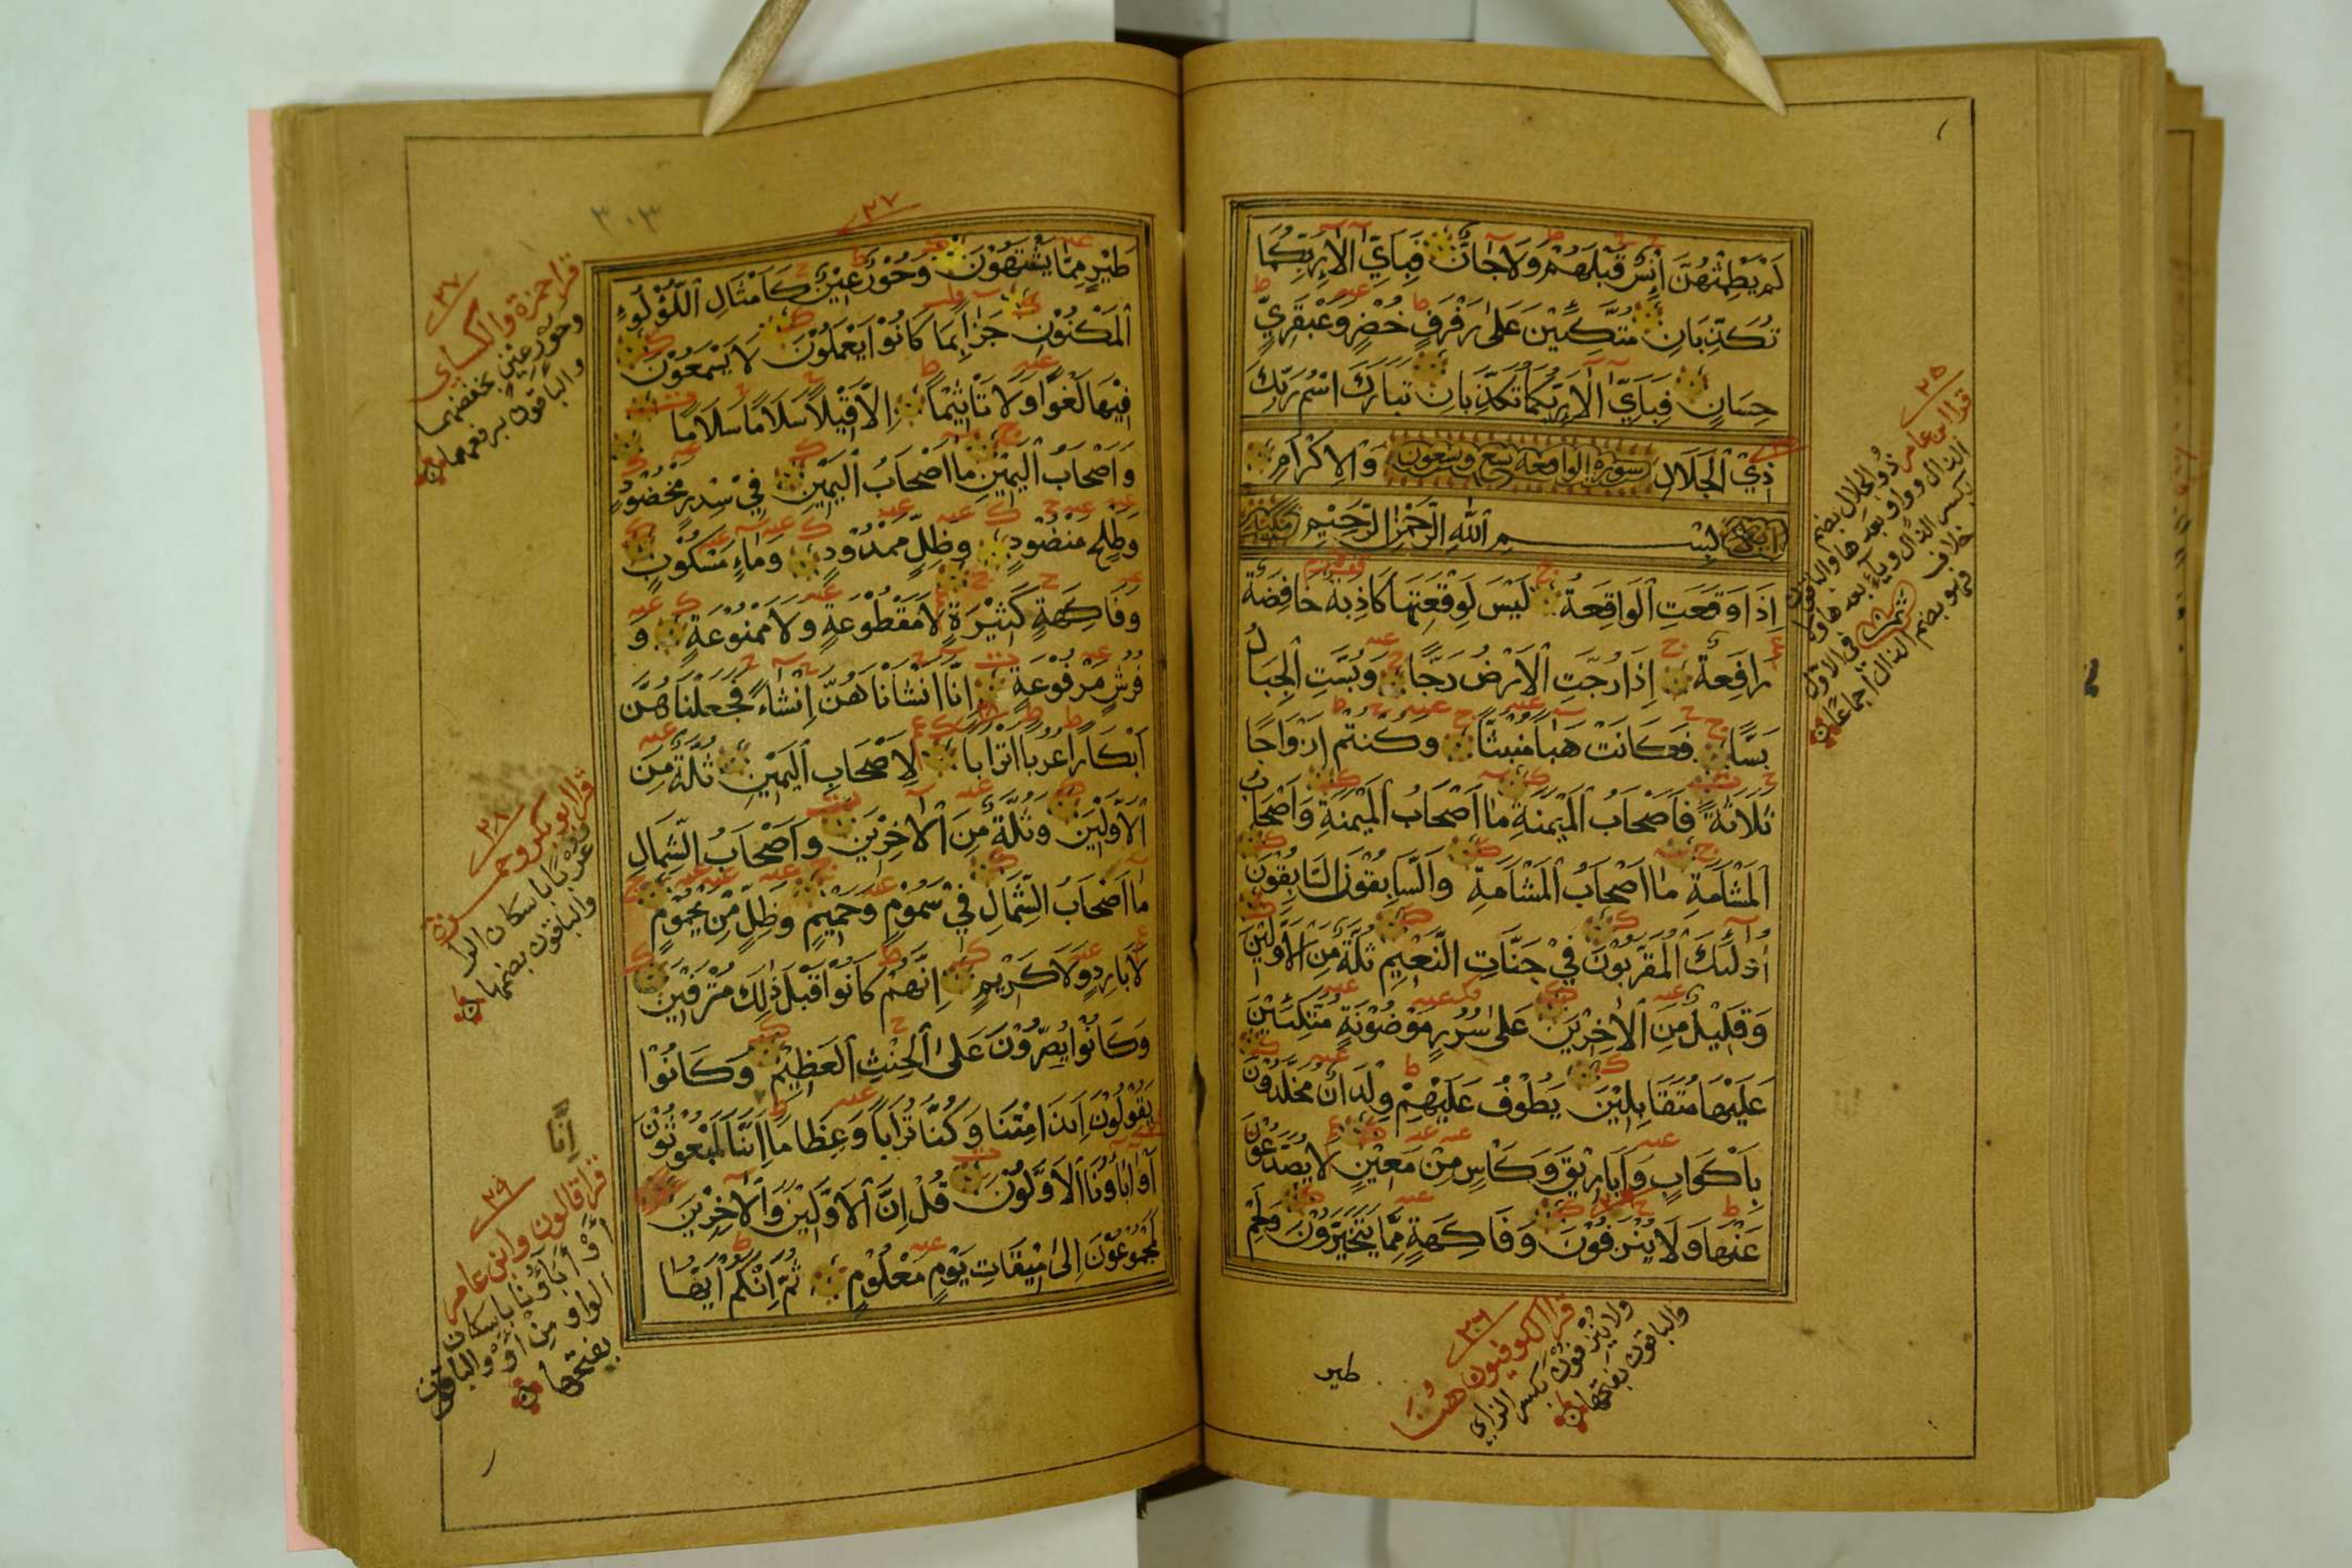 لَمْ يَطْمِثْهُنَّ اِنْسٌ قَبْلَهُمْ وَلَا جَانٌّ فَبِاَيِّ اٰلَاءِ رَبِّكُمَا
تُكَذِّبَانِ مُتَّكِئِيْنَ عَلٰى رَفْرَفٍ خُضْرٍ وَعَبْقَرِيٍّ
حِسَانٍ فَبِاَيِّ اٰلَاءِ رَبِّكُمَا تُكَذِّبَانِ تَبَارَكَ اسْمُ رَبِّكَ
ذِيْ الْجَلَالِ سورة الواقعة سبع وتسعون وَالْاِكْرَامِ
بِسْمِ اللّٰهِ الرَّحْمٰنِ الرَّحِيْمِ مكية
اِذَا وَقَعَتِ الْوَاقِعَةُ لَيْسَ لِوَقْعَتِهَا كَاذِبَةٌ خَافِضَةٌ
رَافِعَةٌ اِذَا رُجَّتِ الْاَرْضُ رَجًّا وَبُسَّتِ الْجِبَالُ
بَسًّا فَكَانَتْ هَبَاءً مُنْبَثًّا وَكُنْتُمْ اَزْوَاجًا
ثَلَاثَةً فَاَصْحَابُ الْمَيْمَنَةِ مَا اَصْحَابُ الْمَيْمَنَةِ وَاَصْحَابُ
الْمَشْاَمَةِ مَا اَصْحَابُ الْمَشْاَمَةِ وَالسَّابِقُوْنَ السَّابِقُوْنَ
اُولٰئِكَ الْمُقَرَّبُوْنَ فِيْ جَنَّاتِ النَّعِيْمِ ثُلَّةٌ مِنَ الْاَوَّلِيْنَ
وَقَلِيْلٌ مِنَ الْاٰخِرِيْنَ عَلٰى سُرُرٍ مَوْضُوْنَةٍ مُتَّكِئِيْنَ
عَلَيْهَا مُتَقَابِلِيْنَ يَطُوْفُ عَلَيْهِمْ وِلْدَانٌ مُخَلَّدُوْنَ
بِاَكْوَابٍ وَاَبَارِيْقَ وَكَاْسٍ مِنْ مَعِيْنٍ لَا يُصَدَّعُوْنَ
عَنْهَا وَلَا يُنْزِفُوْنَ وَفَاكِهَةٍ مِمَّا يَتَخَيَّرُوْنَ وَلَحْمِ
٢٥
قرا ابن عامر ذو الجلال بضم
الذال وواو بعدها والباقون
بكسر الذال وياء بعدها ولا
خلاف في الاول
فهو بضم الذال اجماعا
٢٦
قرا الكوفيون هنا
ولا ينزفون بكسر الزاي
والباقون بفتحها
طير
٢٧
٣٠٣
طَيْرٍ مِمَّا يَشْتَهُوْنَ وَحُوْرٌ عِيْنٌ كَاَمْثَالِ اللُّؤْلُؤِ
الْمَكْنُوْنِ جَزَاءً بِمَا كَانُوْا يَعْمَلُوْنَ لَا يَسْمَعُوْنَ
فِيْهَا لَغْوًا وَلَا تَاْثِيْمًا اِلَّا قِيْلًا سَلَامًا سَلَامًا
وَاَصْحَابُ الْيَمِيْنِ مَا اَصْحَابُ الْيَمِيْنِ فِيْ سِدْرٍ مَخْضُوْدٍ
وَطَلْحٍ مَنْضُوْدٍ وَظِلٍّ مَمْدُوْدٍ وَمَاءٍ مَسْكُوْبٍ
وَفَاكِهَةٍ كَثِيْرَةٍ لَا مَقْطُوْعَةٍ وَلَا مَمْنُوْعَةٍ وَ
فُرُشٍ مَرْفُوْعَةٍ اِنَّا اَنْشَاْنَاهُنَّ اِنْشَاءً فَجَعَلْنَاهُنَّ
اَبْكَارًا عُرُبًا اَتْرَابًا لِاَصْحَابِ الْيَمِيْنِ ثُلَّةٌ مِنَ
الْاَوَّلِيْنَ وَثُلَّةٌ مِنَ الْاٰخِرِيْنَ وَاَصْحَابُ الشِّمَالِ
مَا اَصْحَابُ الشِّمَالِ فِيْ سَمُوْمٍ وَحَمِيْمٍ وَظِلٍّ مِنْ يَحْمُوْمٍ
لَا بَارِدٍ وَلَا كَرِيْمٍ اِنَّهُمْ كَانُوْا قَبْلَ ذٰلِكَ مُتْرَفِيْنَ
وَكَانُوْا يُصِرُّوْنَ عَلَى الْحِنْثِ الْعَظِيْمِ وَكَانُوْا
يَقُوْلُوْنَ اَئِذَا مِتْنَا وَكُنَّا تُرَابًا وَعِظَامًا اَئِنَّا لَمَبْعُوْثُوْنَ
اَوَاٰبَاؤُنَا الْاَوَّلُوْنَ قُلْ اِنَّ الْاَوَّلِيْنَ وَالْاٰخِرِيْنَ
لَمَجْمُوْعُوْنَ اِلٰى مِيْقَاتِ يَوْمٍ مَعْلُوْمٍ ثُمَّ اِنَّكُمْ اَيُّهَا
٢٧
قرا حمزة والكسايى
وحورٍ عينٍ بخفضهما
والباقون برفعهما
٢٨
قرا ابو بكر وحمزة
عربا باسكان الرا
والباقون بضمها
اِنَّا
٢٩
قرا قالون وابن عامر
أوْ أباؤنا باسكان
الواو من أوْ والباقون
بفتحها